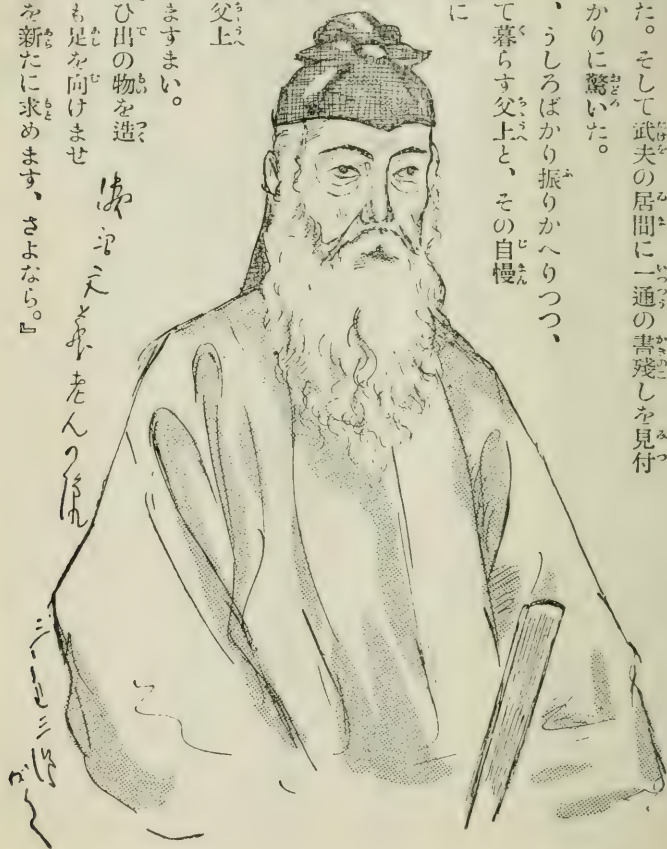 た。そして武夫の居間に一通の書殘しを見付
かりに驚いた。
、うしろばかり振りかへりつつ、
て暮らす父上と、その自慢
に
父上
ますまい。
ひ出の物を造
も足を向けませ
を新たに求めます、さよなら。』
老人の像